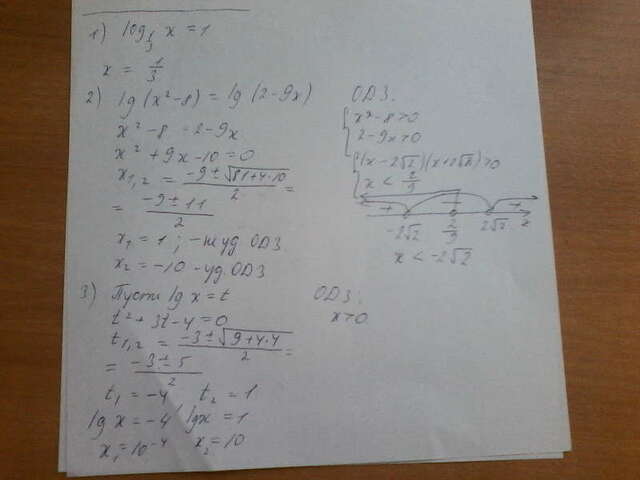 1) log_{1/3} x = 1
x = 1/3
2) lg(x²-8) = lg(2-9x)
x²-8 = 2-9x
x² + 9x - 10 = 0
x_{1,2} = (-9 ± √(81+4·10))/2 =
= (-9 ± 11)/2
x₁ = 1; - не уд. ОДЗ.
x₂ = -10 - уд. ОДЗ
ОДЗ:
{ x²-8>0
2-9x>0
{ (x-2√2)(x+2√2)>0
x < 2/9
+ - +
-2√2 2/9 2√2 x
x < -2√2
3) Пусть lg x = t
t² + 3t - 4 = 0
t_{1,2} = (-3 ± √(9+4·4))/2 =
= (-3 ± 5)/2
t₁ = -4 t₂ = 1
lg x = -4 lg x = 1
x₁ = 10⁻⁴ x₂ = 10
ОДЗ:
x>0